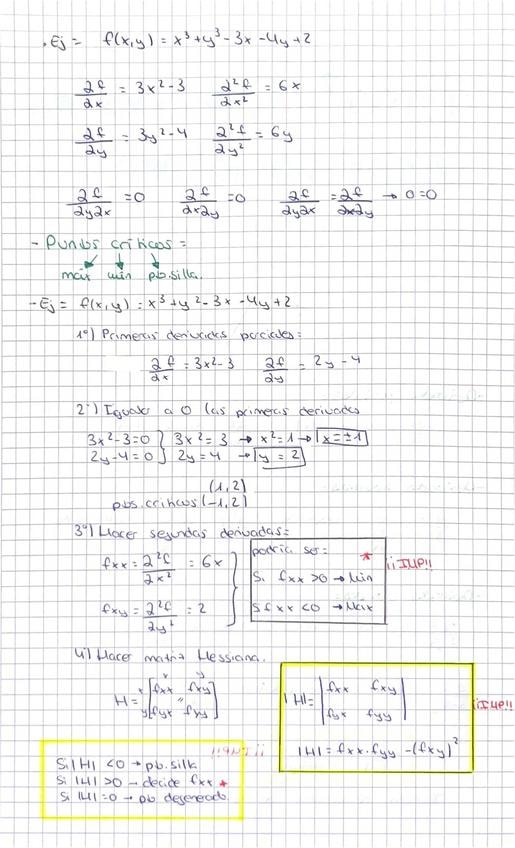 . Ej = f(x,y) = x³+y³-3x-4y+2
∂f/∂x = 3x²-3 ∂²f/∂x² = 6x
∂f/∂y = 3y²-4 ∂²f/∂y² = 6y
∂f/∂y∂x = 0 ∂f/∂x∂y = 0 ∂f/∂y∂x = ∂f/∂x∂y → 0=0
- Puntos críticos =
máx min pto.silla.
- Ej = f(x,y) = x³+y²-3x-4y+2
1º) Primeras derivadas parciales:
∂f/∂x = 3x²-3 ∂f/∂y = 2y-4
2º) Igualar a 0 las primeras derivadas
3x²-3=0 } 3x²=3 → x²=1 → x=±1
2y-4=0 } 2y=4 → y = 2
(1,2)
ptos.críticos (-1,2)
3º) Hacer segundas derivadas=
fxx = ∂²f/∂x² = 6x
fxy = ∂²f/∂y² = 2
podría ser: *
Si fxx >0 → Min
Si fxx <0 → Max
¡¡IMP!!
4º) Hacer matriz Hessiana.
x y
H = x [fxx fxy]
y [fyx fxy]
|H| = |fxx fxy|
|fyx fyy|
|H| = fxx.fyy -(fxy)²
¡IMP!!
Si |H| <0 → pto.silla
Si |H| >0 → decide fxx *
Si |H| =0 → pto degenerado.